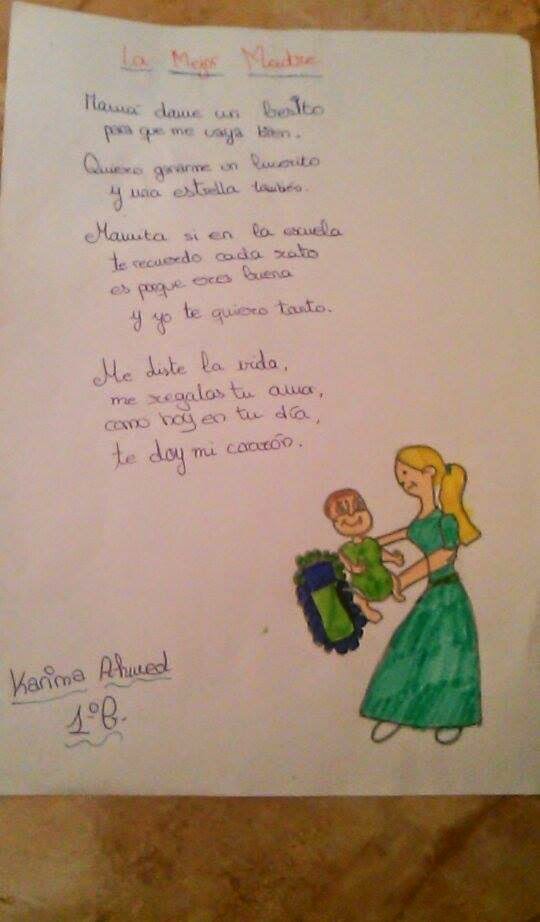 La Mejor Madre
Mamá dame un besito
para que me vaya bien.
Quiero ganarme un lucerito
y una estrella también.
Mamita si en la escuela
te recuerdo cada rato
es porque eres buena
y yo te quiero tanto.
Me diste la vida,
me regalas tu alma,
como hoy en tu día,
te doy mi corazón.
Karima Ahmed
1º B.